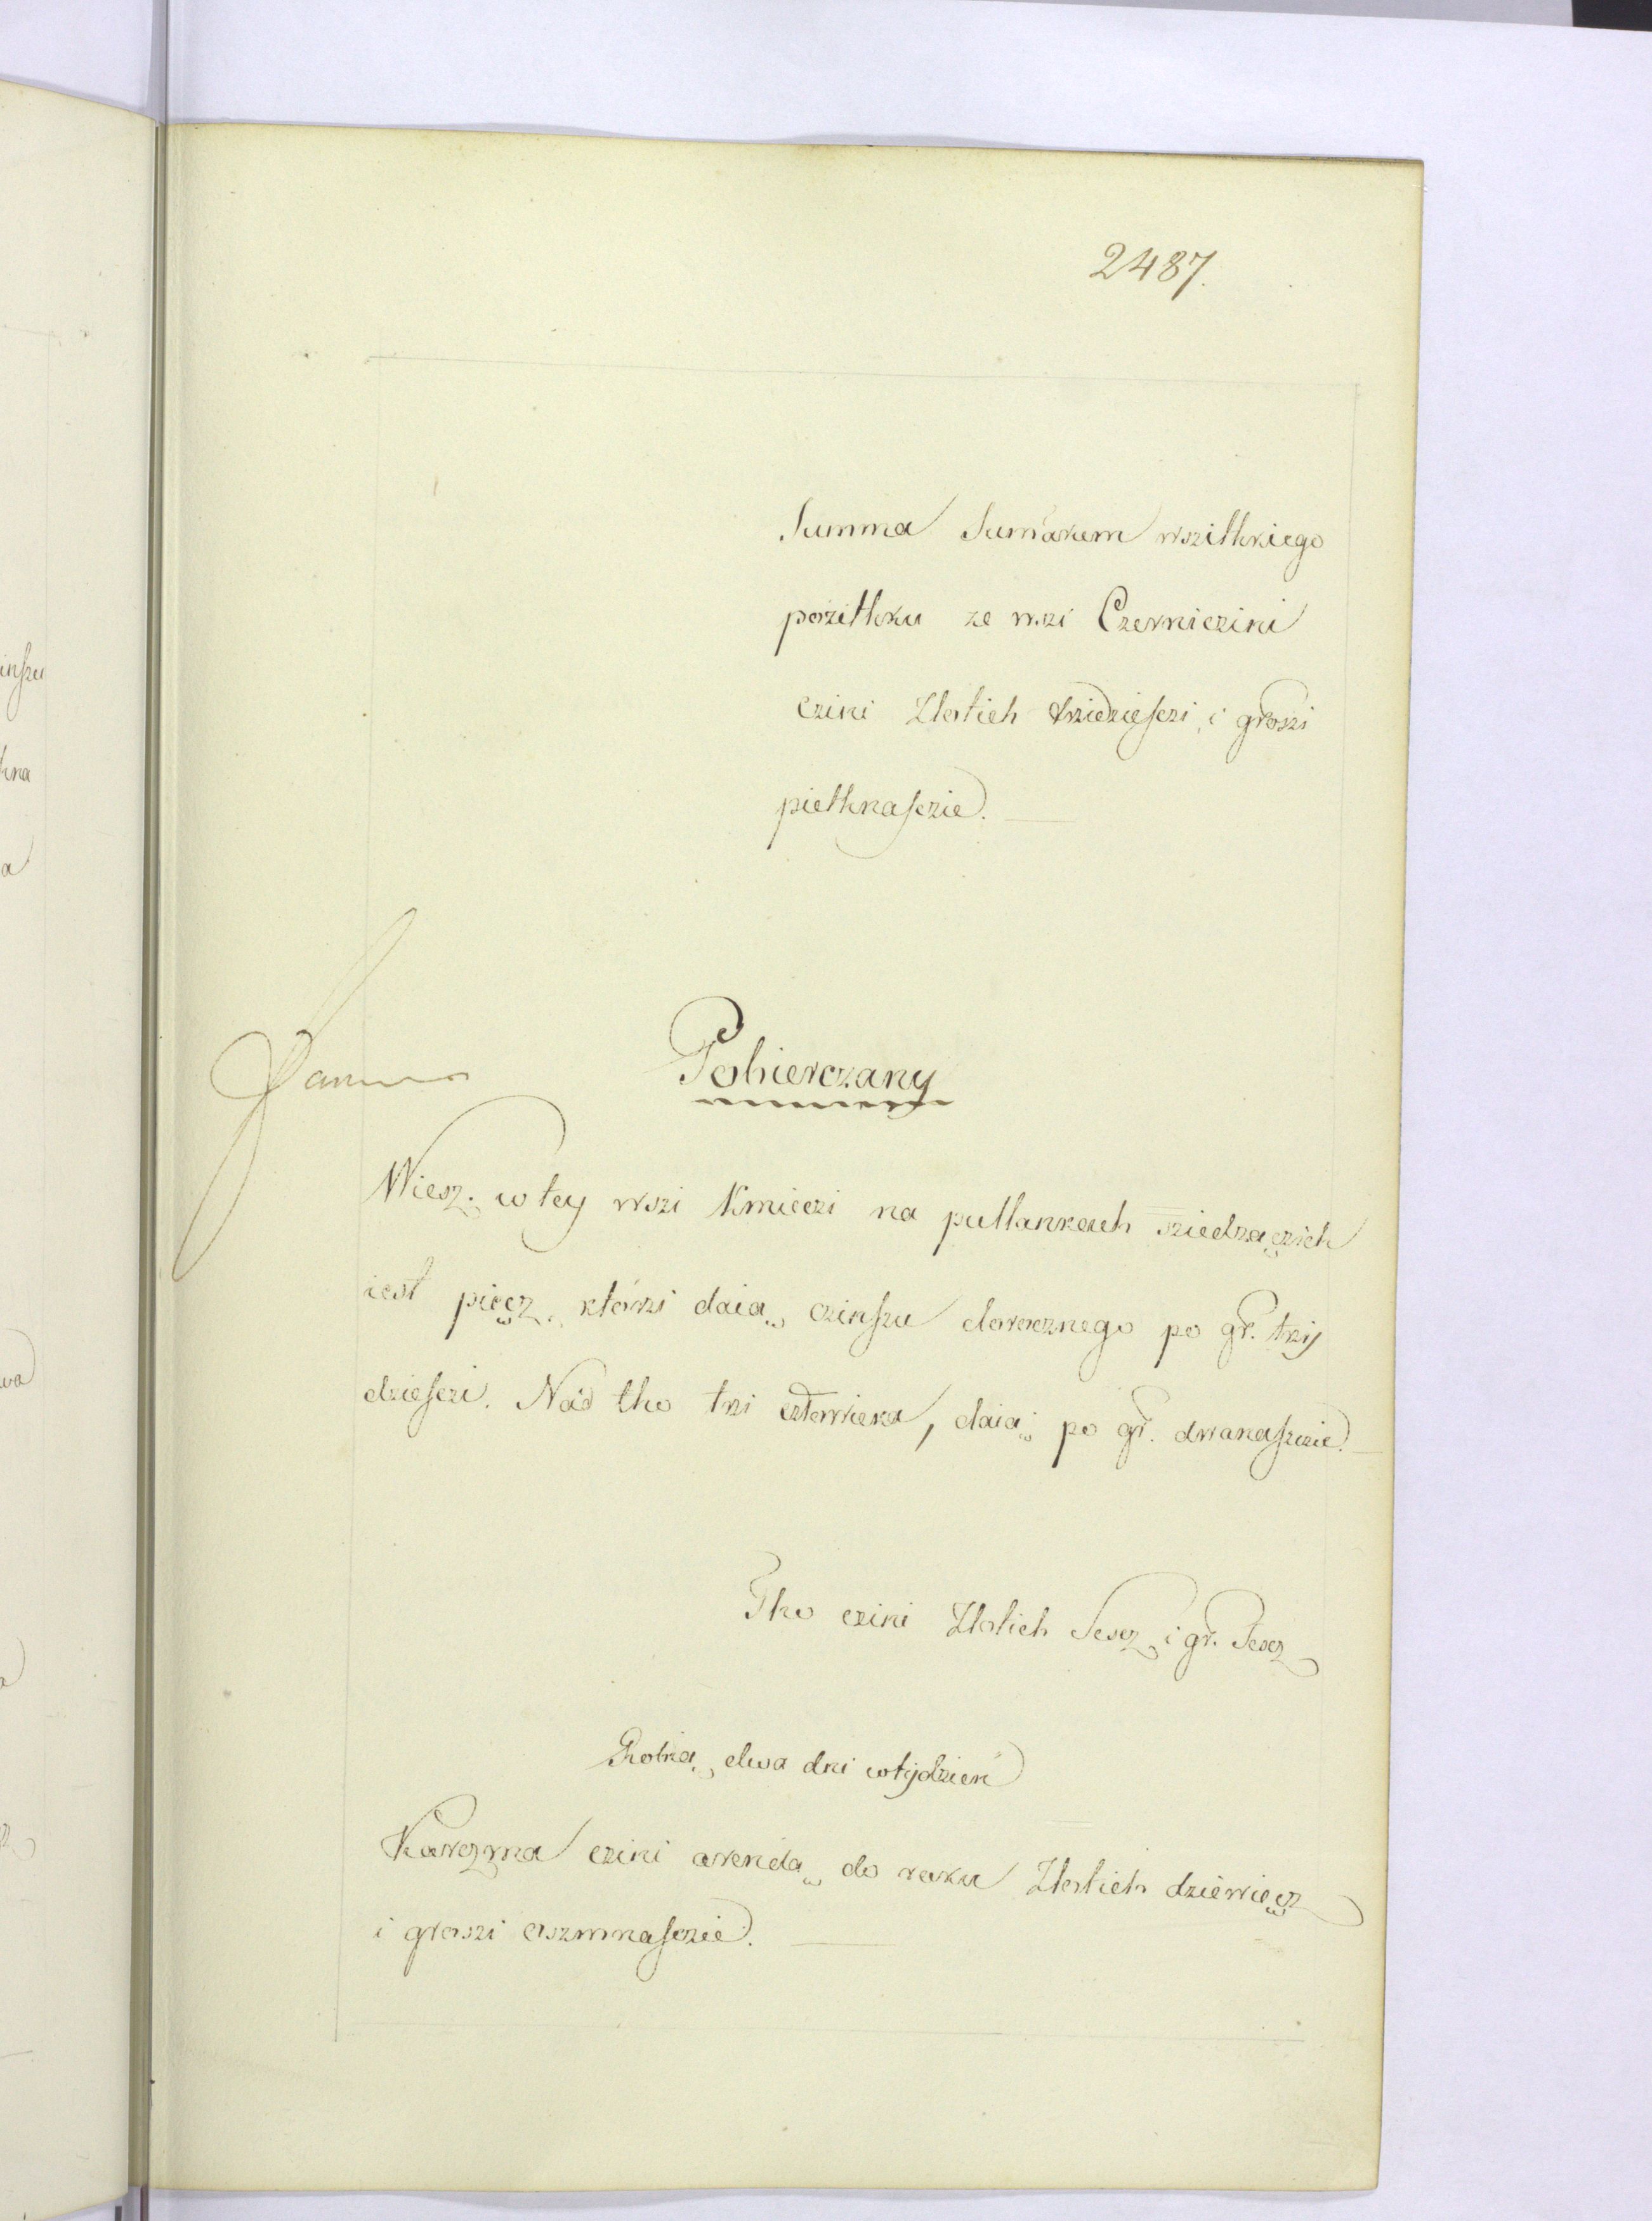 2487.
Summa Sumarum wszithkiego
pozithku ze wszi Czerniczini
czini Zlotich trzidzieſczi, i groszi
piethnaſczie.
Pobierczany
Wiesz. w tey wszi Kmieczi na pullankach sziedzączich
iest pięcz, którzi daią czinſzu dorocznego po gr. trzy
dzieſczi. Nad tho trzi człowieka, daią po gr. dwanaſzczie.
Tho czini Zlotich Sescz i gr. Sescz
Robią dwa dni w tydzień
Karczma czini arendą do roku Zlotich dziewięcz
i groszi oszmnaſczie.
inſzu
kna
a
wa